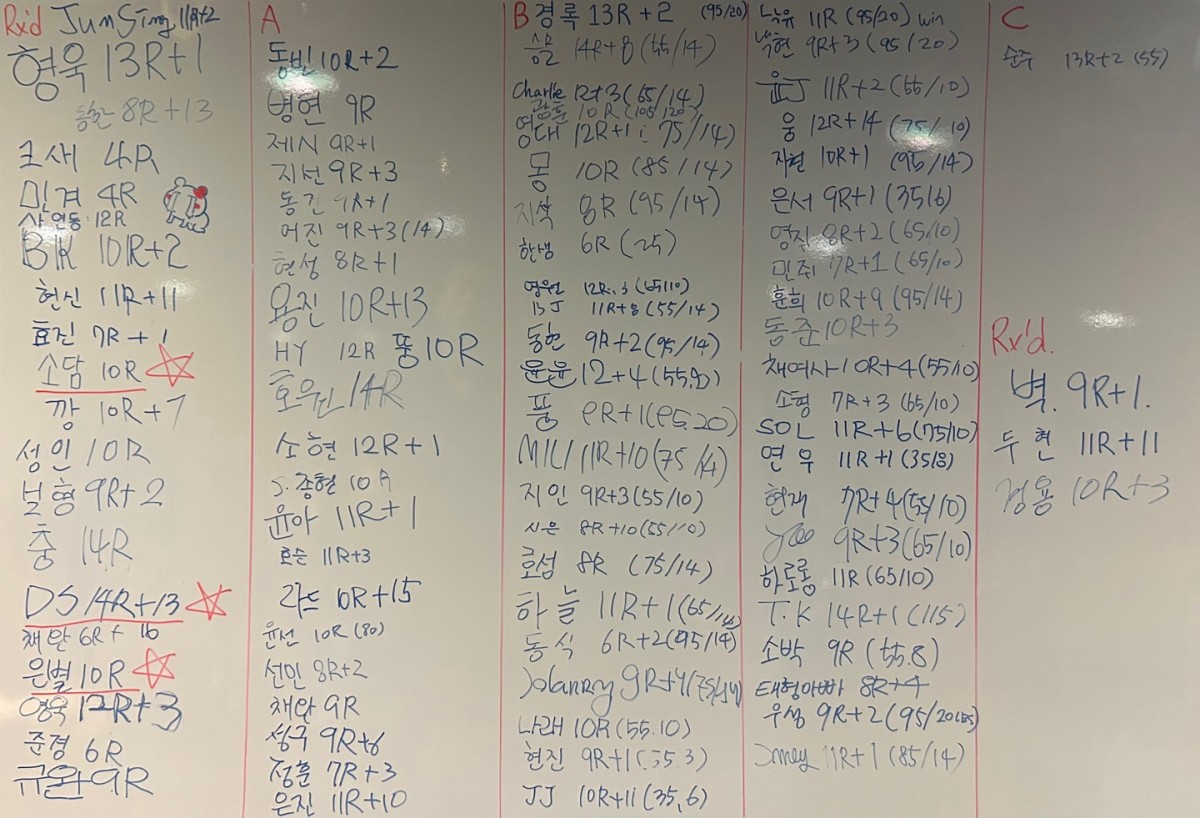 Rx'd JunSing 11R+2
형욱 13R+1
동환 8R+13
모새 4R
민겨 4R
사연동: 12R
BK 10R+2
헌신 11R+11
효진 7R+1
소담 10R
깡 10R+7
성인 10R
보형 9R+2
충 14R
DS 14R+13
채완 6R+16
은별 10R
영욱 12R+3
준경 6R
규완 9R
A
동빈 10R+2
병현 9R
제시 9R+1
지선 9R+3
동긴 9R+1
어진 9R+3(14)
현성 8R+1
용진 10R+13
HY 12R 뚱 10R
호원 14R
소현 12R+1
S.종현 10R
윤아 11R+1
효순 11R+3
라스 10R+15
윤선 10R (80)
선민 8R+2
채완 9R
성구 9R+6
정훈 7R+3
은진 11R+10
B 경록 13R+2 (95/20)
승모 14R+8 (55/14)
Charlie 12+3 (65/14)
광훈 10R (105/20)
영대 12R+1 : 75/14)
몽 10R (85/14)
지석 8R (95/14)
한샘 6R (25)
영원 12R.3 (65/10)
BJ 11R+8 (55/14)
동현 9R+2 (95/14)
윤윤 12+4 (55.8)
풍 9R+1 (95.20)
MILI 11R+10 (75/14)
지인 9R+3 (55/10)
시은 8R+10 (55/10)
호섭 8R (75/14)
하늘 11R+1 (65/14)
동식 6R+2 (95/14)
9R+4 (75/14)
나래 10R (55.10)
현진 9R+1 (55.3)
JJ 10R+11 (35,6)
낙유 11R (95/20) win
낙현 9R+3 (95/20)
윤J 11R+2 (55/10)
웅 12R+14 (75/10)
지현 10R+1 (95/14)
은서 9R+1 (35/6)
영진 8R+2 (65/10)
민주 7R+1 (65/10)
훈희 10R+9 (95/14)
동준 10R+3
채여사 10R+4 (55/10)
소형 7R+3 (65/10)
SOL 11R+6 (75/10)
연우 11R+1 (35/8)
현재 7R+4 (55/10)
Yoo 9R+3 (65/10)
하로롱 11R (65/10)
T.K 14R+1 (115)
소박 9R (55.8)
태형아빠 8R+4
우성 9R+2 (95/20
11R+1 (85/14)
C
순수 13R+2 (55)
Rx'd.
벽. 9R+1.
두현 11R+11
경용 10R+3